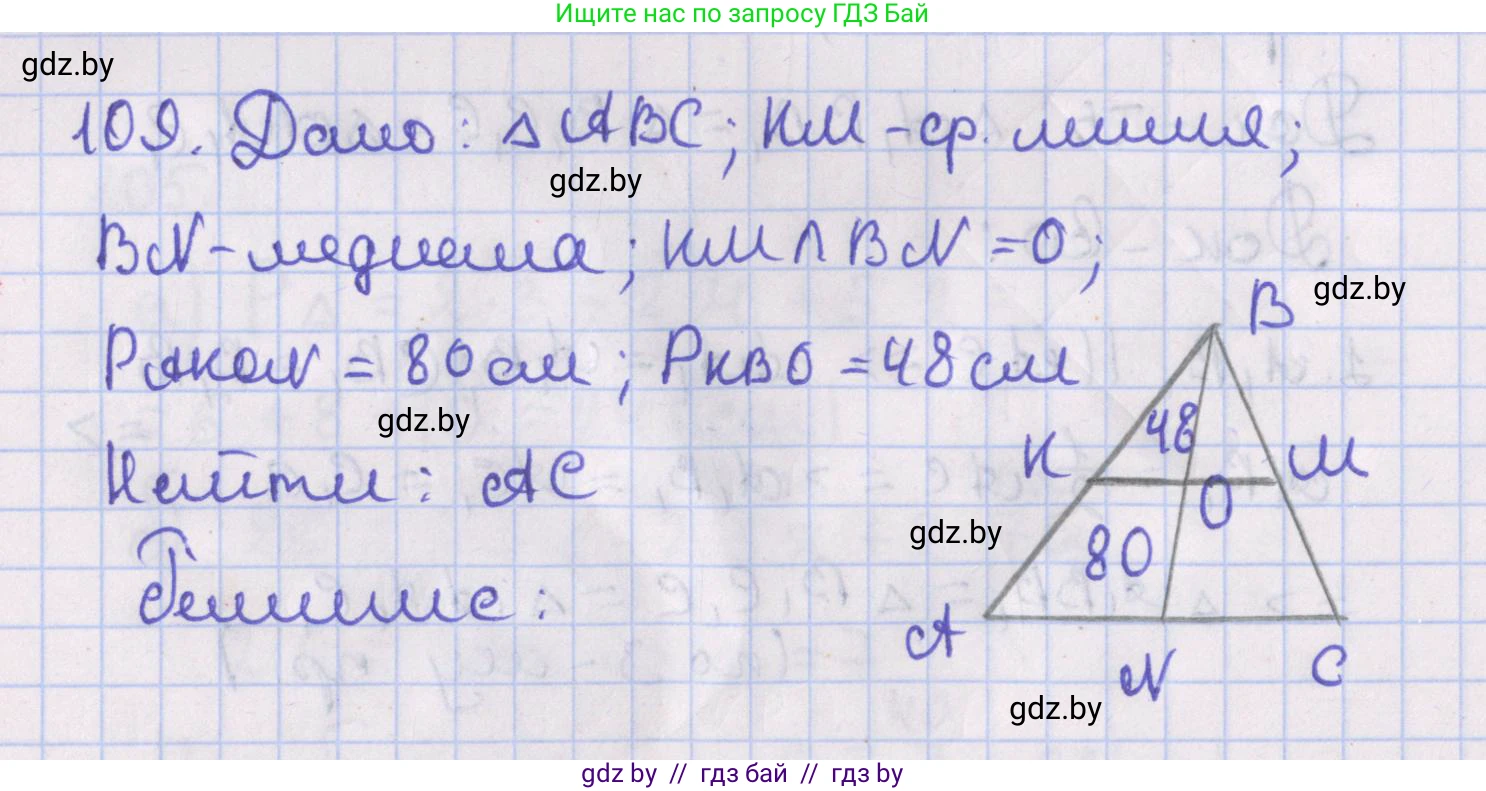 Ищите нас по запросу ГДЗ Бай
gdz.by
109. Дано: △ABC; KM - ср. линия;
gdz.by
BN - медиана; KM ∩ BN = O;
gdz.by
B
P AKON = 80 см; P KBO = 48 см
gdz.by
48
K
M
Найти: AC
O
gdz.by
80
Решение:
A
N
C
gdz.by
gdz by // гдз бай // гдз by